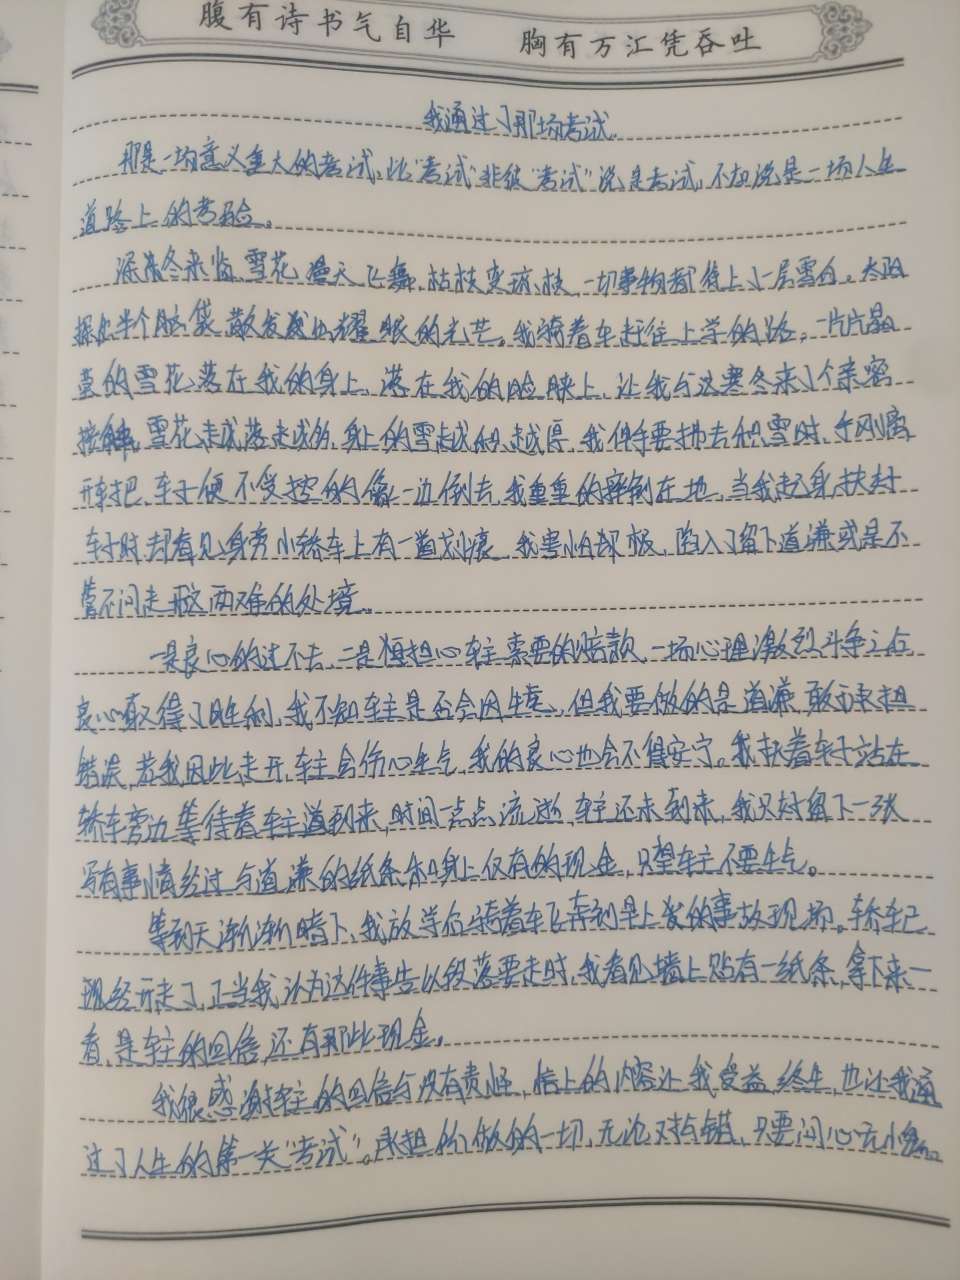 腹有诗书气自华 胸有万汇凭吞吐
我通过了那场考试
那是一场意义重大的考试,此"考试"非彼"考试"说是考试,不如说是一场人生
道路上的考验。
深冬来临,雪花漫天飞舞,枯枝变琼枝,一切事物都铺上了一层雪白。太阳
探出半个脑袋,散发出耀眼的光芒。我骑着车赶往上学的路,一片片晶
莹的雪花落在我的身上,落在我的脸颊上,让我与这寒冬来了个亲密
接触。雪花越落越,身上的雪越积越厚,我伸手要拂去积雪时,手刚离
开车把,车子便不受控的像一边倒去,我重重的摔倒在地,当我起身扶好
车子时却看见身旁小轿车上有一道划痕,我害怕却极,陷入了留下道谦或是不
管不问走开这两难的处境。
一是良心的过不去,二是担心车主索要的赔款,一场心理激烈斗争之后
良心取得了胜利,我不知车主是否会因生,但我要做的是道谦,敢于承担
错误,若我因此走开,车主会伤心生气,我的良心也会不得安宁。我扶着车子站在
轿车旁边,等待着车主道到来,时间一点点流逝,车主还未到来,我只好留下一张
写有事情经过与道谦的纸条和身上仅有的现金,只望车主不要生气。
等到天渐渐暗下,我放学后骑着车飞奔到早上发的事故现场。轿车已
经开走了,正当我认为这件事告以段落要走时,我看见墙上贴有一纸条,拿下来一
看,是车主的回信,还有那些现金。
我很感谢车主的回信与没有责怪,信上的内容让我受益终生,也让我通
过了人生的第一关"考试"。承担你做的一切,无论对与错,只要问心无愧。